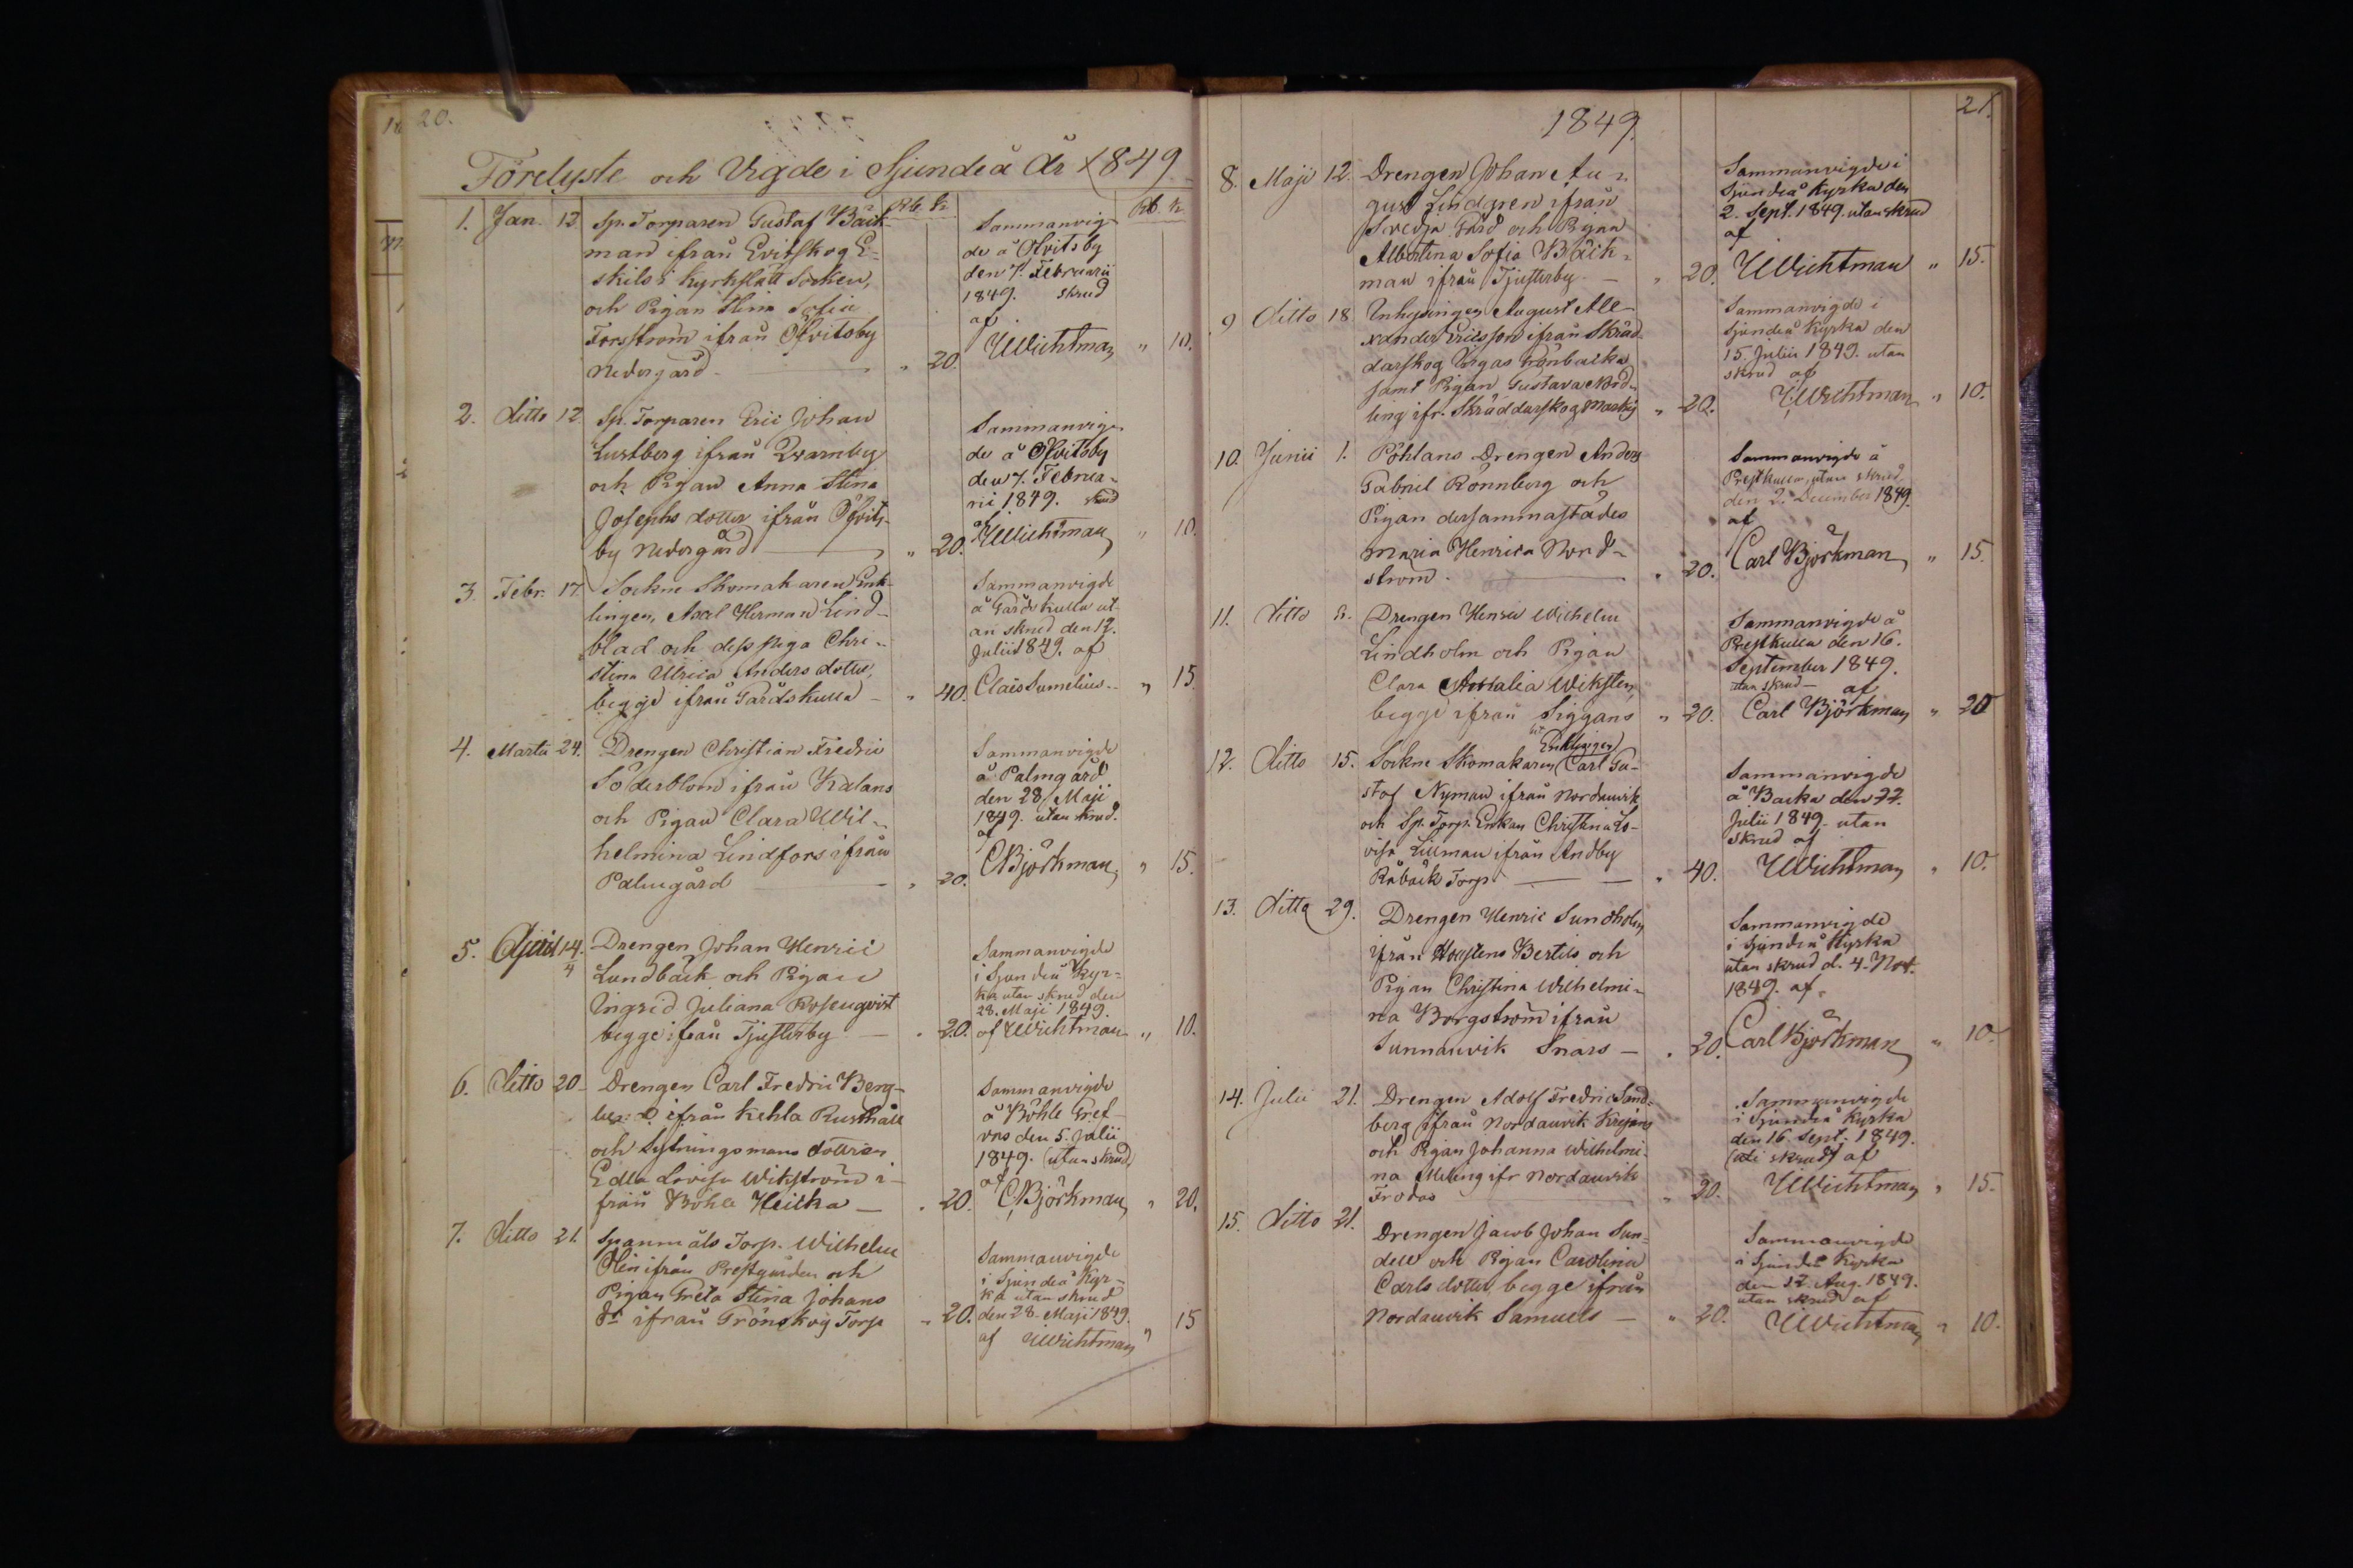 20.
Förelyste och Vigde i Sjundeå År 1849
Rb. k. Rb. k.
1. Jan. 12. Sp. Torparen Gustaf Bäck-
man ifrån Evitskog E-
skils i Kyrkslätt Socken,
och Pigan Stina Sofia
Forsström ifrån Öfvitsby
Nedergård " 20.
Sammanvig-
de å Öfvitsby
den 7. Februarii
1849. skrud
af
Wichtman " 10.
2. Ditto 12. Sp. Torparen Eric Johan
Lustberg ifrån Qvarnby
och Pigan Anna Stina
Josephs dotter ifrån Öfvits-
by Nedergård " 20.
Sammanvig-
de å Öfvitsby
den 7. Februa-
rii 1849. skrud
af Wichtman " 10.
3. Febr. 17. Sockne Skomakaren Enk-
lingen, Axel Herman Lind-
blad och dess Piga Chri-
stina Ulrica Anders dotter,
begge ifrån Gårdskulla " 40.
Sammanvigde
å Gårdskulla ut-
an skrud den 12.
Julii 1849. af
Claës Sumelius " 15.
4. Martii 24. Drengen Christian Fredric
Söderblom ifrån Kalans
och Pigan Clara Wil-
helmina Lindfors ifrån
Palmgård " 20.
Sammanvigde
å Palmgård
den 28 Maji
1849. utan skrud.
af
CBjörkman " 15.
5. April 14. Drengen Johan Henric
Lundbäck och Pigan
Ingrid Juliana Rosenqvist
begge ifrån Tjusterby " 20.
Sammanvigde
i Sjundeå Kyr-
ka utan skrud den
28. Maji 1849.
af Wichtman " 10.
6. Ditto 20 Drengen Carl Fredric Berg-
ifrån Kehla Rusthåll
och Sytningsmans dottren
Edla Lovisa Wikström i-
från Böhle Heicka " 20.
Sammanvigde
å Böhle Gref-
vas den 5. Julii
1849. (utan skrud)
af
CBjörkman " 20.
7. Ditto 21. Spanmåls Torp. Wilhelm
Olin ifrån Prestgården och
Pigan Greta Stina Johans
dr ifrån Grönskog Torp " 20.
Sammanvigde
i Sjundeå Kyr-
ka utan skrud
den 28. Maji 1849.
af Wichtman " 15
1849.
21.
8. Maji 12. Drengen Johan Au-
gust Lindgren ifrån
Svedja Gård och Pigan
Albertina Sofia Bäck-
man ifrån Tjusterby " 20.
Sammanvigde i
Sjundeå Kyrka den
2. Sept. 1849. utan skrud
af
Wichtman " 15.
9 Ditto 18 Inhysingen August Ale-
xander Ericsson ifrån Skräd-
darskog Grönbacka
samt Pigan Gustava Nord-
ling ifr. Skräddarskog " 20.
Sammanvigde i
Sjundeå Kyrka den
15. Julii 1849. utan
skrud af
Wichtman " 10.
10. Junii 1. Pohlans Drengen Anders
Gabriel Rönnberg och
Pigan dersammastädes
Maria Henrica Nord-
ström. " 20.
Sammanvigde å
Prestkulla, utan skrud
den 2. December 1849.
af
Carl Björkman " 15.
11. Ditto Drengen Henric Wilhelm
Lindholm och Pigan
Clara Wiksten,
begge ifrån Siggans " 20.
Sammanvigde å
Prestkulla den 16.
September 1849.
utan skrud af
Carl Björkman " 20
12. Ditto 15. Sockne Skomakaren Enklingen Carl Gu-
staf Nyman ifrån Nordanvik
och Sp. Torp. Enkan Christina Lo-
visa Lillman ifrån Andby
Råbäck Torp " 40.
Sammanvigde
å Backa den 22.
Julii 1849. utan
skrud af
Wichtman " 10.
13. Ditto 29. Drengen Henric Sundholm
ifrån Bertils och
Pigan Christina Wilhelmi-
na Borgström ifrån
Sunnanvik Snars " 20.
Sammanvigde
i Sjundeå Kyrka
utan skrud d. 4. Nov.
1849. af
Carl Björkman " 10.
14. Julii 21. Drengen Adolf Fredric Sand-
berg ifrån Nordanvik Krejans
och Pigan Johanna Wilhelmi-
na Melling ifr Nordanvik
Frodas " 20.
Sammanvigde
i Sjundeå Kyrka
den 16 Sept. 1849.
skrud) af
Wichtman " 15.
15. Ditto 21. Drengen Jacob Johan Sun-
dell och Pigan Carolina
Carls dotter, begge ifrån
Nordanvik Samuels " 20.
Sammanvigde
i Sjundeå Kyrka
den 12. Aug. 1849.
utan skrud af
Wichtman " 10.